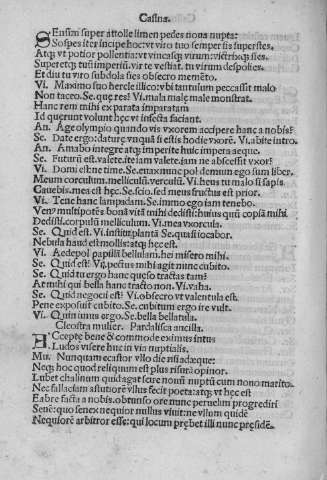 Casina.
SEnsim super attolle limen pedes noua nupta:
Sospes iter incipe hoc: vt viro tuo semper sis superstes.
Atq; vt potior pollentia: vt vincasq; virum: victrixq; sies.
Superetq; tuũ imperiũ. vir te vestiat. tu virum despolies.
Et diu tu viro subdola sies obsecro memẽto.
Vi. Maximo suo hercle illico: vbi tantulum peccassit malo
Non taceo. Se. que res? Vi. mala malę male monstrat.
Hanc rem mihi ex parata imparatam
Id querunt volunt hęc vt infecta faciant.
An. Age olympio quando vis vxorem accipere hanc a nobis?
Se. Date ergo: daturę vnquã si estis hodie vxorẽ. Vi. abite intro.
An. Amabo integrę atq; imperite huic impera aeque.
Se. Futurũ est. valete. ite iam valete. iam ne abscessit vxor?
Vi. Domi est: ne time. Se. euax nunc pol demum ego sum liber.
Meum corculum. melliculũ. verculũ. Vi. heus tu malo si sapis
Cauebis. mea est hęc. Se. scio. sed meus fructus est prior.
Vi. Tene hanc lampadam. Se. immo ego iam tenebo.
Ven⁹ multipotẽs bonã vitã mihi dedisti: huius quũ copiã mihi
Dedisti. corpulũ melliculum. Vi. mea vxorcula.
Se. Quid est. Vi. institit plantã Se. quasi iocabor.
Nebula haud est mollis: atq; hęc est.
Vi. Aedepol papillã bellulam. hei misero mihi.
Se. Quid est? Vi. pectus mihi agit nunc cubito.
Se. Quid tu ergo hanc queso tractas tam?
At mihi qui bella hanc tracto non. Vi. vaha.
Se. Quid negocii est? Vi. obsecro vt valentula est.
Pene exposuit cubito. Se. cubitum ergo ire vult.
Vi. Quin imus ergo. Se. bella bellatula.
Cleostra mulier. Pardalisca ancilla.
ACcepte bene & commode eximus intus
Ludos visere huc in via nuptialis.
Mu. Nunquam ecastor vllo die risi adæque:
Neq; hoc quod reliquum est plus risurã opinor.
Lubet chalinum quid agat scire nouũ nuptũ cum nouo marito.
Nec fallaciam astutiorẽ vllus fecit poeta: atq; vt hęc est
Fabre facta a nobis. obtunso ore nunc peruelim progrediri
Senẽ: quo senex nequior nullus viuit: ne vllum quidẽ
Nequiorẽ arbitror esse: qui locum pręhet illi nunc pręsidẽ.